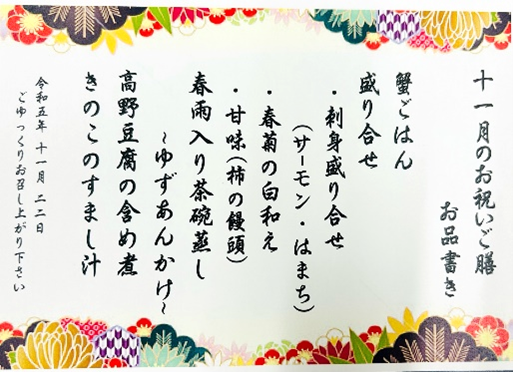 十一月のお祝いご膳
お品書き
蟹ごはん
盛り合せ
・刺身盛り合せ
(サーモン・はまち)
・春菊の白和え
・甘味(柿の饅頭)
春雨入り茶碗蒸し
~ゆずあんかけ~
高野豆腐の含め煮
きのこのすまし汁
令和五年 十一月 二二日
ごゆっくりお召し上がり下さい